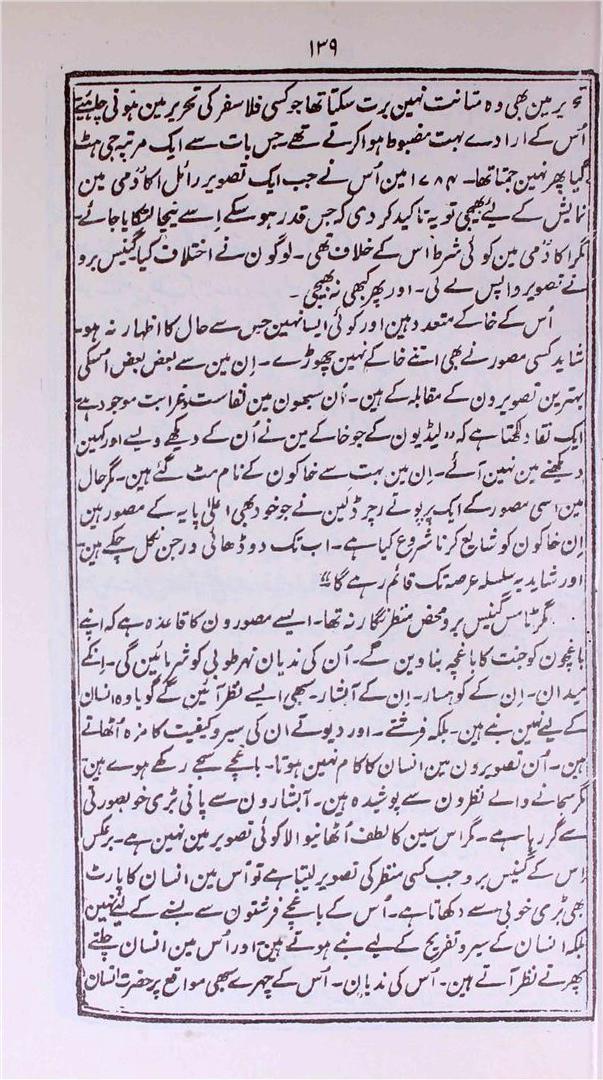 ۱۳۹
تحریر مین بھی وہ متانت نہین برت سکتا تھا جو کسی فلاسفر کی تحریر مین ہونی چاہئیے
اُس کے ارادے بہت مضبوط ہوا کرتے تھے۔ جس بات سے ایک مرتبہ جی ہٹ
گیا پھر نہین جمتا تھا۔ ۱۷۸۴ مین اُس نے جب ایک تصویر رائل اکاڈمی مین
نمایش کے لیے بھیجی تو یہ تاکید کر دی کہ جس قدر ہو سکے اِسے نیچا لٹکایا جائے۔
مگر اکاڈمی مین کوئی شرط اس کے خلاف تھی۔ لوگون نے اختلاف کیا گینس برو
نے تصویر واپس لے لی۔ اور پھر کبھی نہ بھیجی۔
اُس کے خاکے متعدد ہین اور کوئی ایسا نہین جس سے حال کا اظہار نہ ہو۔
شاید کسی مصور نے بھی اتنے خاکے نہین چھوڑے۔ اِن مین سے بعض بعض اُسکی
بہترین تصویرون کے مقابلہ کے ہین۔ اُن سبھون مین نفاست و غرابت موجود ہے
ایک نقاد لکھتا ہے کہ "لیڈیون کے جو خاکے مین نے اُن کے دیکھے ویسے اور کہین
دیکھنے مین نہین آئے۔ اِن مین بہت سے خاکون کے نام مٹ گئے ہین۔ مگر حال
مین اسی مصور کے ایک پرپوتے رچرڈ لین نے جو خود بھی اعلیٰ پایہ کے مصور ہین
اِن خاکون کو شایع کرنا شروع کیا ہے۔ اب تک دو ڈھائی درجن نکل چکے ہین
اور شاید یہ سلسلہ عرصہ تک قائم رہے گا"
مگر ٹامس گینس برو محض منظر نگار نہ تھا۔ ایسے مصورون کا قاعدہ ہے کہ اپنے
باغیچون کو جنت کا باغیچہ بنا دین گے۔ اُن کی ندیان نہر طوبی کو شرمائین گی۔ انکے
میدان۔ اِن کے کوہسار۔ اِن کے آبشار۔ سبھی ایسے نظر آئین گے گویا وہ انسان
کے لیے نہین بنے ہین۔ بلکہ فرشتے۔ اور دیوتے ان کی سیر و کیفیت کا مزہ اُٹھاتے
ہین۔ اُن تصویرون مین انسان کا کام نہین ہوتا۔ باغیچے سجے رکھے ہوے ہین
مگر سجانے والے نظرون سے پوشیدہ ہین۔ آبشارون سے پانی بڑی خوبصورتی
سے گر رہا ہے۔ مگر اس سین کا لطف اُٹھانیوالا کوئی تصویر مین نہین ہے۔ برعکس
اس کے گینس برو جب کسی منظر کی تصویر لیتا ہے تو اُس مین انسان کا پارٹ
بھی بڑی خوبی سے دکھاتا ہے۔ اُس کے باغیچے فرشتون سے بسنے کے لیے نہین
بلکہ انسان کے سیر و تفریح کے لیے بنے ہوتے ہین اور اُس مین انسان چلتے
پھرتے نظر آتے ہین۔ اُس کی ندیان۔ اُس کے چہرے سبھی مواقع پر حضرت انسان